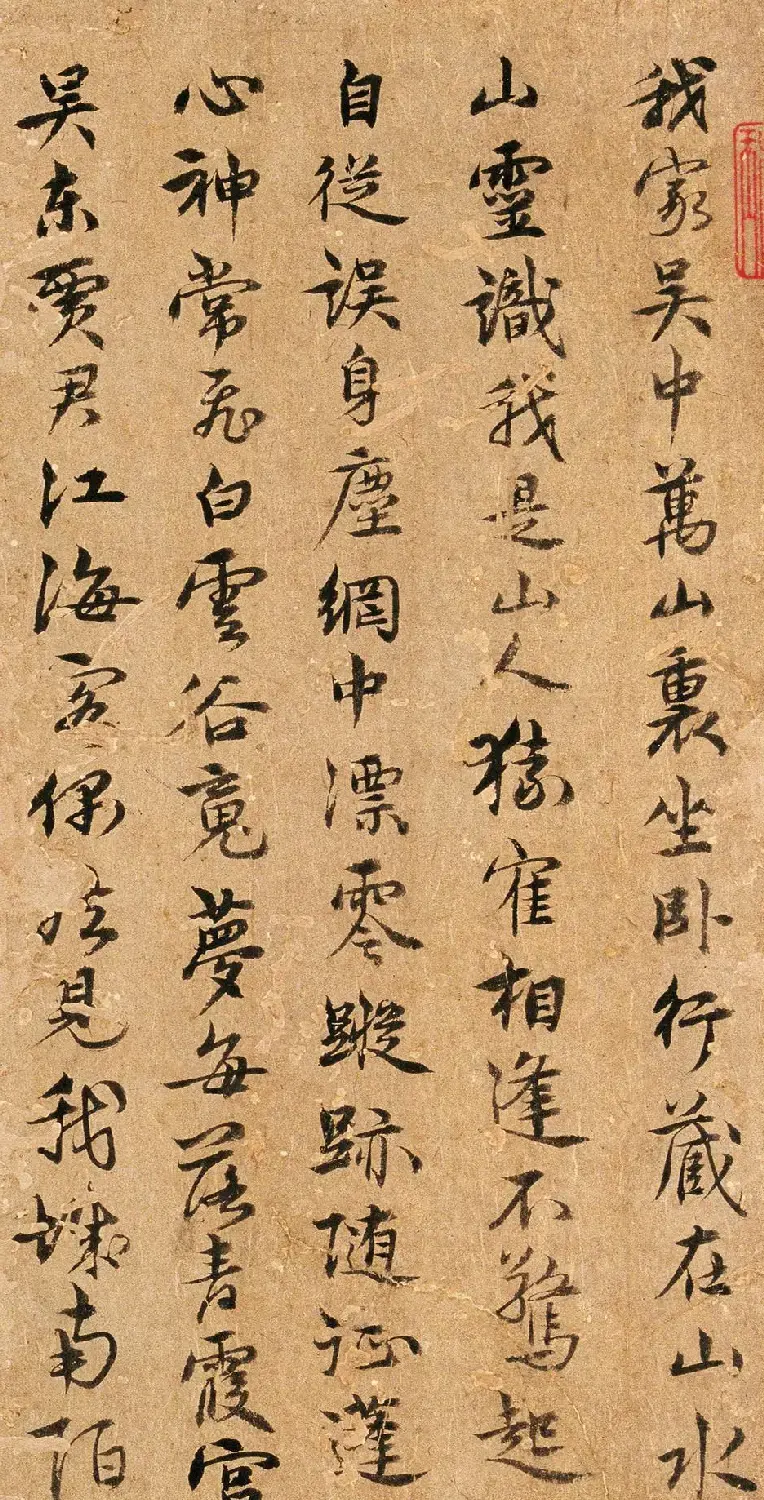 我家吳中萬山裏坐卧行藏在山水
山靈識我是山人猿寉相逢不驚起
自從誤身塵網中漂零蹤跡隨征蓬
心神常飛白雲谷魂夢每落青霞宮
吳東賈君江海客偶然見我城南陌